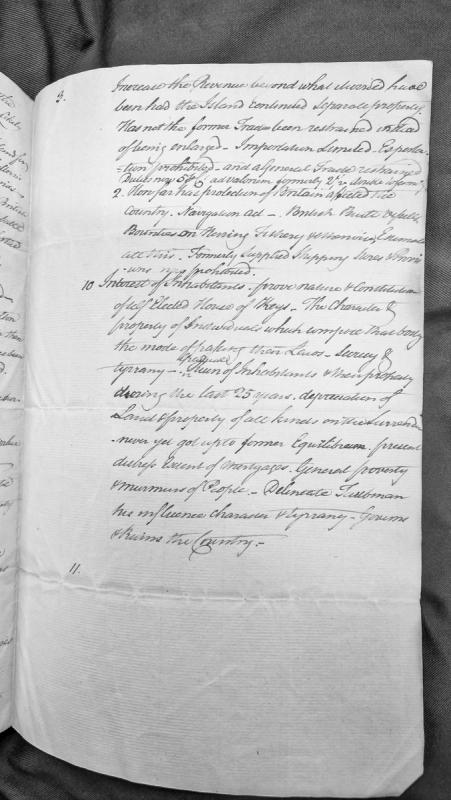 3. Increase the Revenue beyond what it would have
been had the Island continued Separate property.
Has not the former Trade been restrained instead
of being enlarged - Importation Limited - Exporta-
-tion prohibited - and a General Trade restrained
Duties now 5 ad valorem formerly 2
2. How far has protection of Britain affected the
Country. Navigation act - British
Bounties on Herring Fishery
all this. Formerly supplied Shipping Stores & Provi-
-sions now prohibited.
10 Interest of Inhabitants. prove nature & Constitution
of self Elected House of Keys - The Character &
property of Individuals which compose that body
the mode of making their Laws - Secrecy &
tyranny - Ruin of Inhabitants & their property
during the last 25 years. depreciation of
Land & property of all kinds on the
never yet got up to former Equilibrium. present
distress Extent of Mortgages. General poverty
& murmurs of People. - Delineate Taubman
his influence character & tyranny - Governs
& Ruins the Country. -
11.